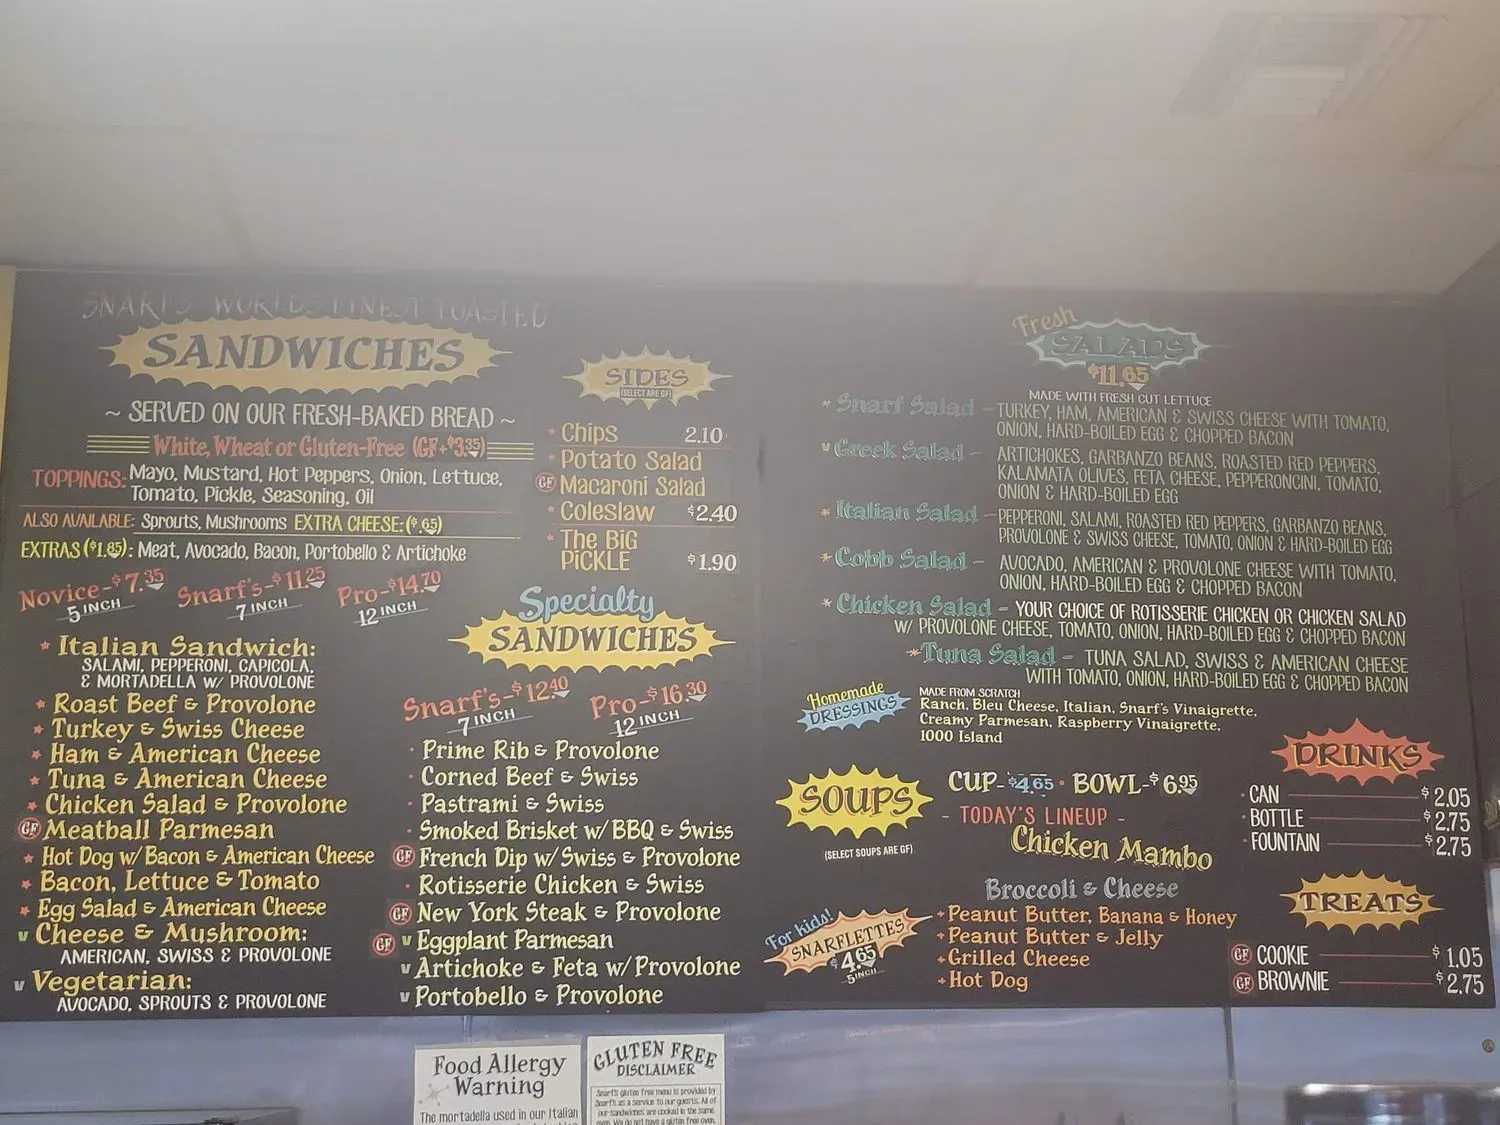 SNARF'S WORLDS FINEST TOASTED
SANDWICHES
~ SERVED ON OUR FRESH-BAKED BREAD ~
White, Wheat or Gluten-Free (GF+$3.35)
TOPPINGS: Mayo, Mustard, Hot Peppers, Onion, Lettuce,
Tomato, Pickle, Seasoning, Oil
ALSO AVAILABLE: Sprouts, Mushrooms EXTRA CHEESE: ($.65)
EXTRAS ($1.85): Meat, Avocado, Bacon, Portobello & Artichoke
Novice-$7.35
5 INCH
Snarf's-$11.25
7 INCH
Pro-$14.70
12 INCH
* Italian Sandwich:
SALAMI, PEPPERONI, CAPICOLA,
& MORTADELLA W/ PROVOLONE
* Roast Beef & Provolone
* Turkey & Swiss Cheese
* Ham & American Cheese
* Tuna & American Cheese
* Chicken Salad & Provolone
GF Meatball Parmesan
* Hot Dog w/Bacon & American Cheese
* Bacon, Lettuce & Tomato
* Egg Salad & American Cheese
V Cheese & Mushroom:
AMERICAN, SWISS & PROVOLONE
V Vegetarian:
AVOCADO, SPROUTS & PROVOLONE
SIDES
(SELECT ARE GF)
* Chips 2.10
* Potato Salad
GF Macaroni Salad
* Coleslaw $2.40
* The BiG
PiCKLE $1.90
Specialty
SANDWICHES
Snarf's-$12.40
7 INCH
Pro-$16.30
12 INCH
· Prime Rib & Provolone
· Corned Beef & Swiss
· Pastrami & Swiss
· Smoked Brisket w/BBQ & Swiss
GF French Dip w/Swiss & Provolone
· Rotisserie Chicken & Swiss
GF New York Steak & Provolone
GF V Eggplant Parmesan
V Artichoke & Feta w/Provolone
V Portobello & Provolone
Fresh
SALADS
$11.65
MADE WITH FRESH CUT LETTUCE
* Snarf Salad - TURKEY, HAM, AMERICAN & SWISS CHEESE WITH TOMATO,
ONION, HARD-BOILED EGG & CHOPPED BACON
V Greek Salad - ARTICHOKES, GARBANZO BEANS, ROASTED RED PEPPERS,
KALAMATA OLIVES, FETA CHEESE, PEPPERONCINI, TOMATO,
ONION & HARD-BOILED EGG
* Italian Salad - PEPPERONI, SALAMI, ROASTED RED PEPPERS, GARBANZO BEANS,
PROVOLONE & SWISS CHEESE, TOMATO, ONION & HARD-BOILED EGG
* Cobb Salad - AVOCADO, AMERICAN & PROVOLONE CHEESE WITH TOMATO,
ONION, HARD-BOILED EGG & CHOPPED BACON
* Chicken Salad - YOUR CHOICE OF ROTISSERIE CHICKEN OR CHICKEN SALAD
W/ PROVOLONE CHEESE, TOMATO, ONION, HARD-BOILED EGG & CHOPPED BACON
* Tuna Salad - TUNA SALAD, SWISS & AMERICAN CHEESE
WITH TOMATO, ONION, HARD-BOILED EGG & CHOPPED BACON
Homemade
DRESSINGS
MADE FROM SCRATCH
Ranch, Bleu Cheese, Italian, Snarf's Vinaigrette,
Creamy Parmesan, Raspberry Vinaigrette,
1000 Island
SOUPS
(SELECT SOUPS ARE GF)
CUP-$4.65 · BOWL-$6.95
- TODAY'S LINEUP -
Chicken Mambo
Broccoli & Cheese
For kids!
SNARFLETTES
$4.65
5 INCH
+ Peanut Butter, Banana & Honey
+ Peanut Butter & Jelly
+ Grilled Cheese
+ Hot Dog
DRINKS
· CAN $2.05
· BOTTLE $2.75
· FOUNTAIN $2.75
TREATS
GF COOKIE $1.05
GF BROWNIE $2.75
Food Allergy
Warning
The mortadella used in our Italian
GLUTEN FREE
DISCLAIMER
Snarf's gluten free menu is provided by
Snarf's as a service to our guests. All of
our sandwiches are cooked in the same
oven. We do not have a gluten free oven.